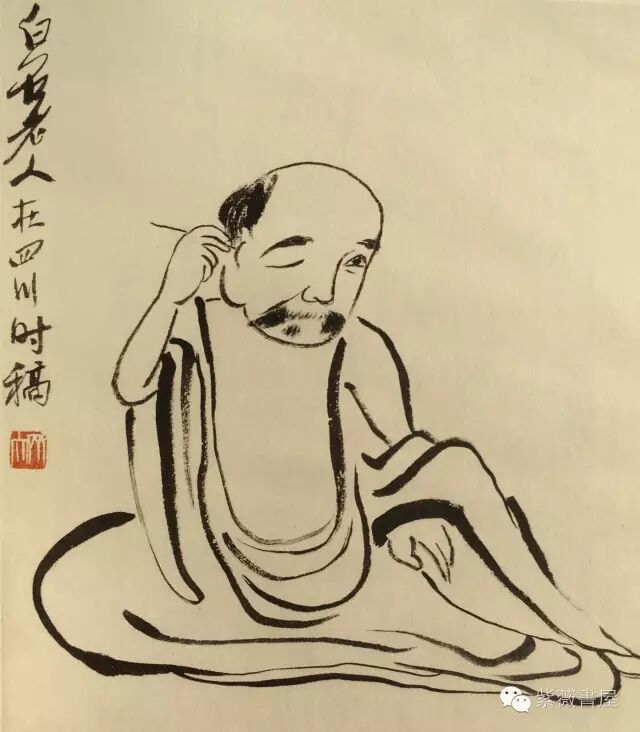 白石老人在四川时稿
紫薇書屋